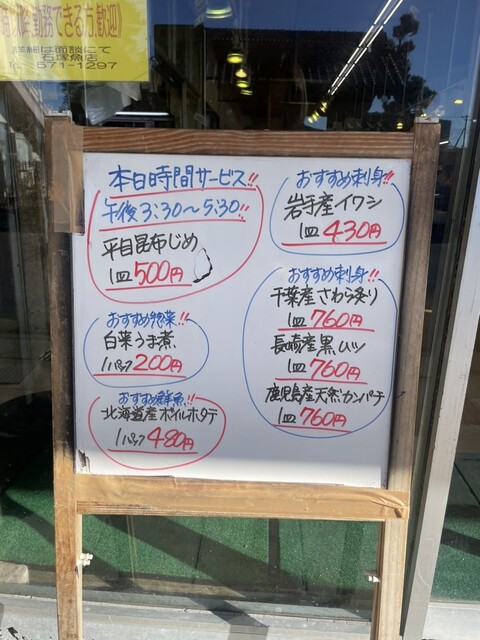 勤務できる方、歓迎)
詳細は面談にて
石塚魚店
571-1297
本日時間サービス!!
午後3:30~5:30!!
平目昆布じめ
1皿500円
おすすめ惣菜!!
白菜うま煮
1パック200円
おすすめ鮮魚!!
北海道産ボイルホタテ
1パック480円
おすすめ刺身!!
岩手産イワシ
1皿430円
おすすめ刺身!!
千葉産さわら炙り
1皿760円
長崎産黒ムツ
1皿760円
鹿児島産天然カンパチ
1皿760円